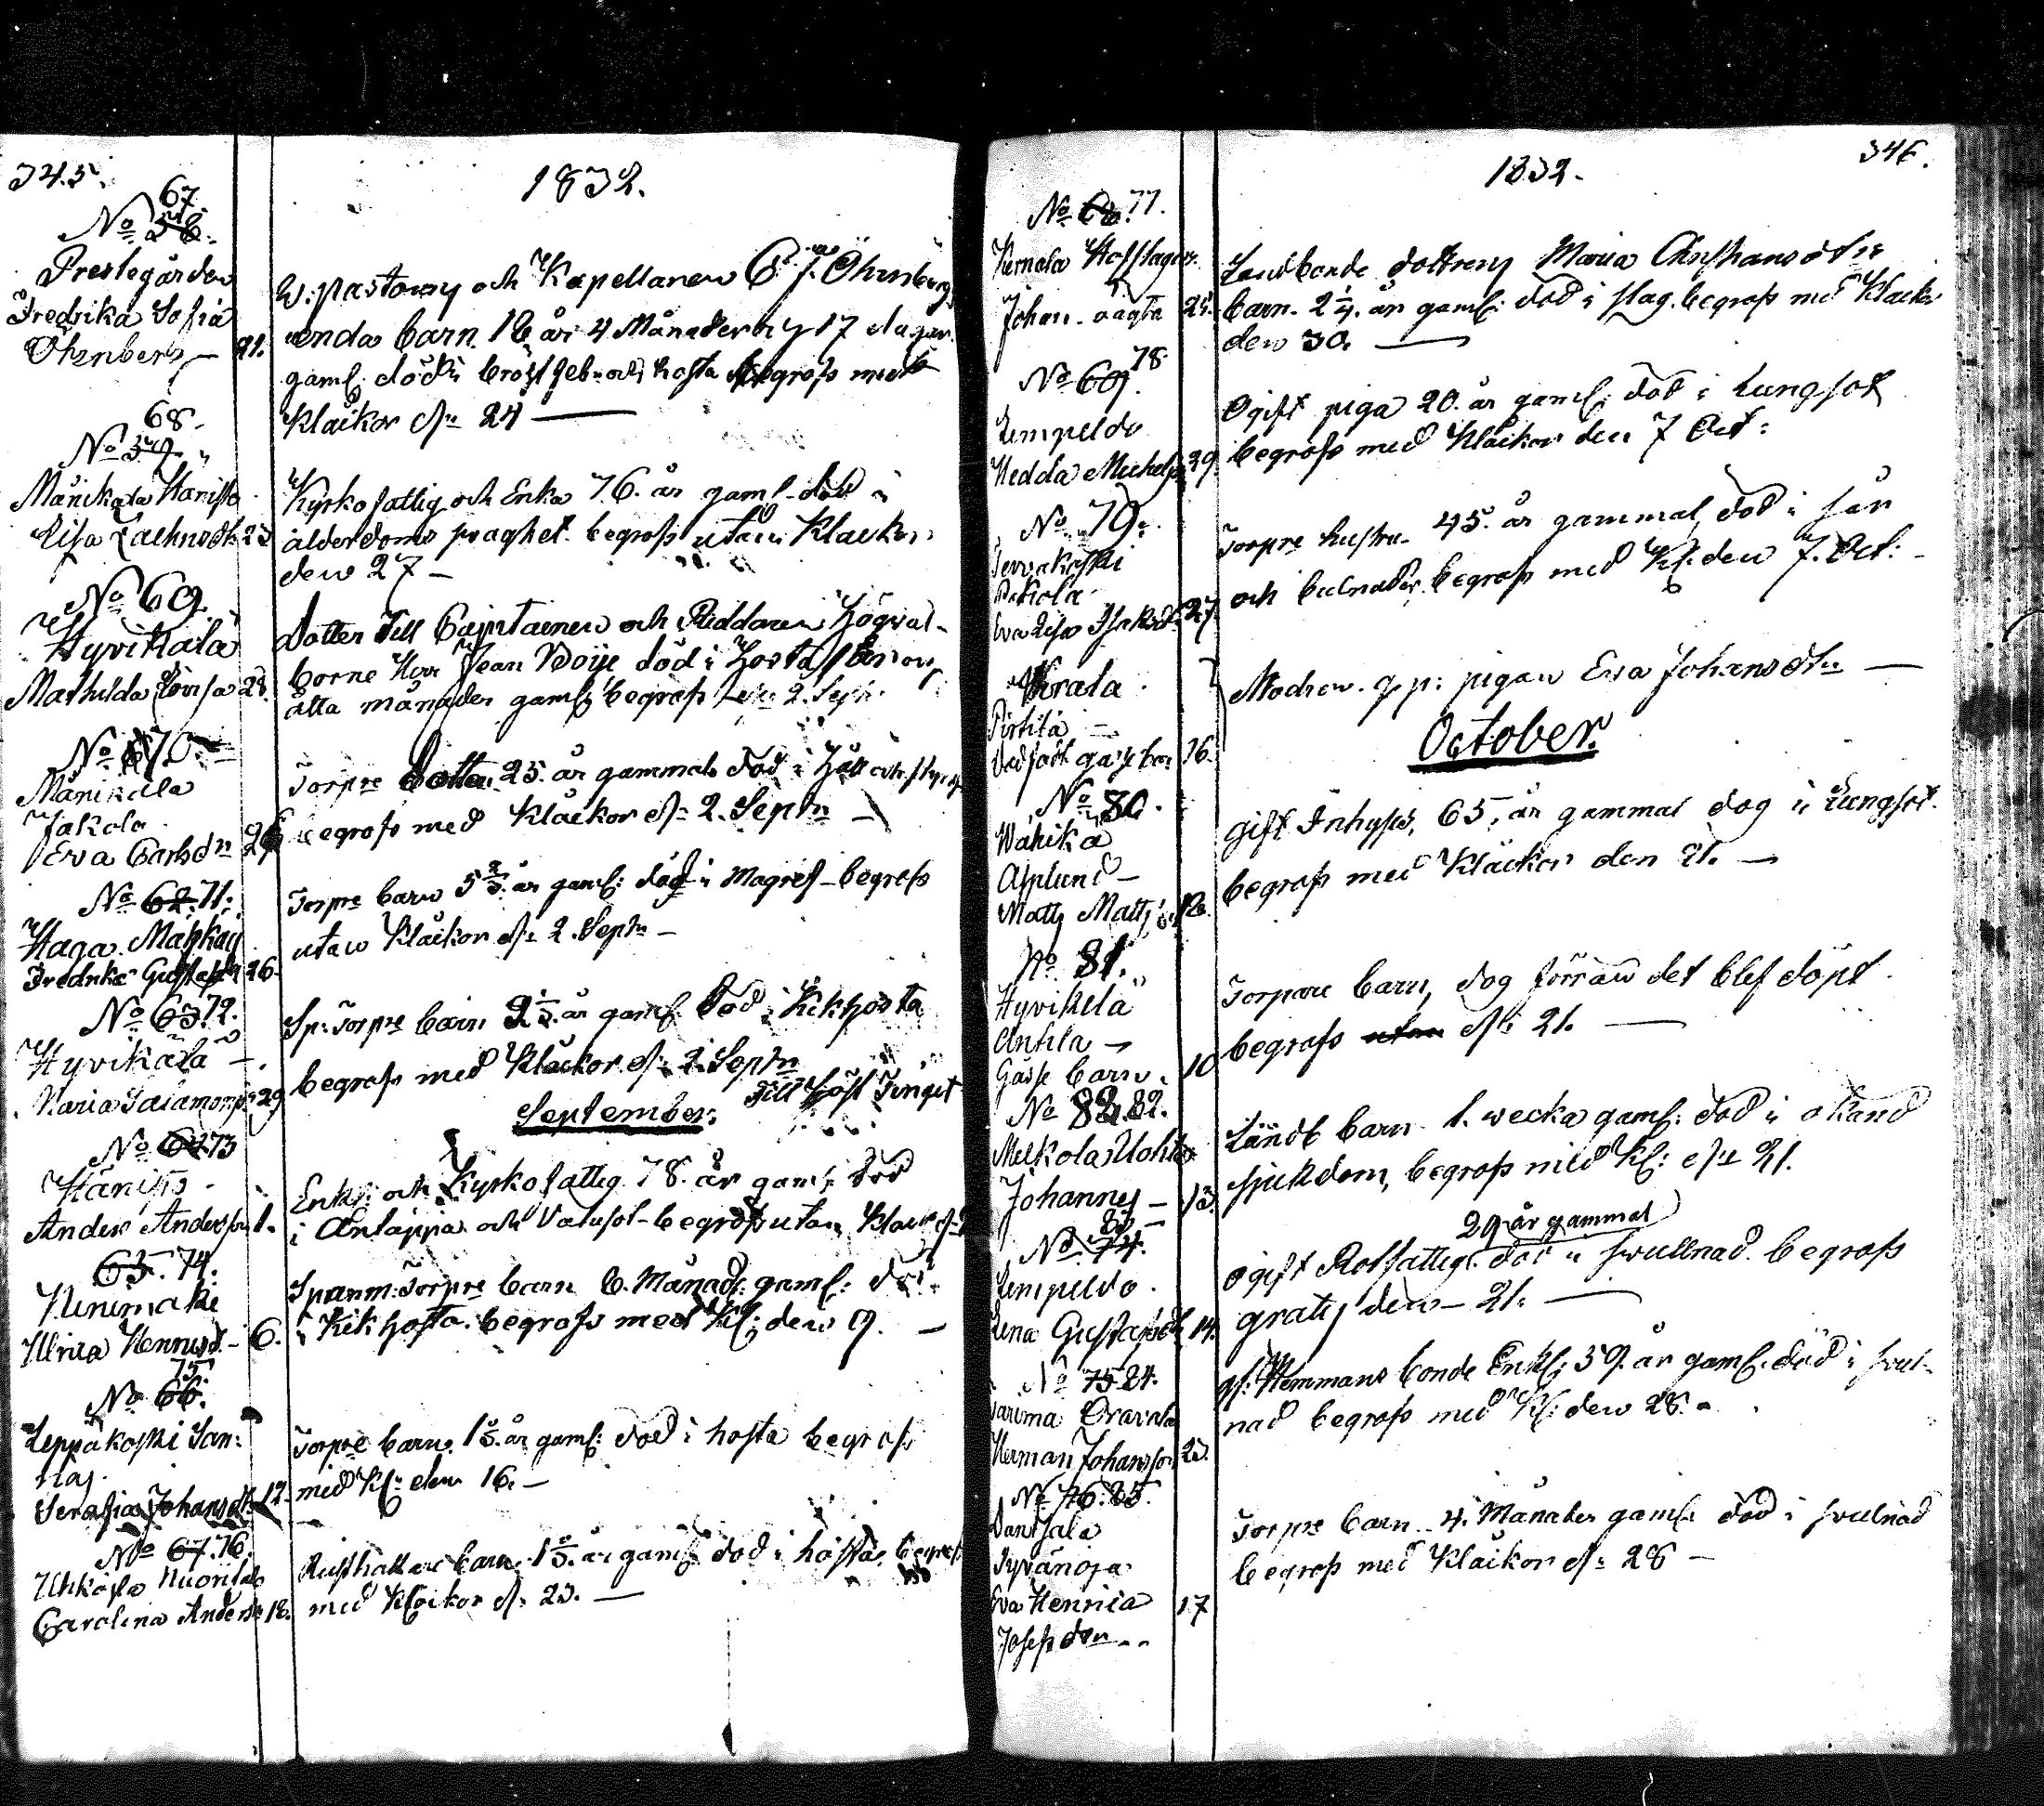 345.
1832.
67.
No 58.
Prestegården
Fredrika Sofia
Öhrnberg — 21.
W. pastorns och Kapellanen C. J. Öhrnbergs
enda barn. 16 år 4 Månader och 17 dagar
gaml: död i bröstfeb: och hosta begrofs med
Klåckor dn 24 —
68.
No 59.
Mänikala Harifto
Lisa Zachrisdtr 23
Kyrkofattig och Enka 76. år gaml död i
ålderdoms svaghet. begrofs utan Klockor
den 27 —
No 69.
Hyvikälä
Mathilda Lovisa 28.
Dotter Till Capitainen och Riddaren Högväl-
borne Herr Jean Boije död i Hosta 1 år och
åtta månader gaml: begrofs dn 2. Sept.
No 70.
Mänikala
Jakola
Eva Carlsdtr 26
Torpre Dotter 25. år gammal död i Håll och styng
begrofs med Klåckor dn 2. Septr —
No 62. 71.
Haga. Mahkas
Fredrika Gustafsdr 26.
Torpre barn 5 år gaml: död i Magref — begrofs
utan Klåckor dn 2. Septr —
No 63. 72.
Hyvikälä —
Maria Salomonsdr 29
Sp: Torpre barn 2 år gaml. Död i Kikhosta
begrofs med Klåckor dn 2. Septr
Till Höst Tinget
September.
No 64. 73
Harifto
Anders Andersson 1.
Enkl: och Kyrkofattig 78. år gaml: död
i Andtäppa och Vatusot — begrofs utan Klock: dn
65. 74.
Ninimäki
Ulrica Henricsd — 6.
Spannm: Torpre barn 6. Månad: gaml: död
i Kikhosta. begrofs med Kl: den 9. —
75.
No 66.
Leppäkoski San-
taj.
Serafia Johansdtr 12.
Torpre barn. 1 år gaml: död i hosta begrofs
med Kl: den 16. —
No 67. 76.
Uhkoila Nuorila
Carolina Andersdr 18.
Rusthållare barn. 1 år gaml: död i hosta. begrofs
med Klåckor dn 23. —
346.
1832.
No 68. 77.
Kernala Hofflager
Johan August 25.
Landbonde dottrens Maria Christiansdtrs
barn. 2 1/4 år gaml: död i slag. begrofs med Klåckor
den 30. —
78
No 69.
Lempeldo
Hedda Michelsd 29.
Ogift piga 20. år gaml: död i Lungsot
begrofs med Klåckor den 7 Oct:
No 79.
Tervakoski
Pakola
Eva Lisa Isaksdr 27.
Torpre hustru. 45. år gammal, död i sår
och bulnader. begrofs med Kl: den 7. Oct: —
Wrala.
Pirtilä —
dödfödt gosse barn 16.
Modren. q. p: pigan Eva Johansdtr —
October.
No 80.
Wähikä
Asplund —
Matts Matts: 12.
gift Inhyses, 65. år gammal dog i Lungsot.
begrofs med Klåckor den 21. —
No 81.
Hyvikälä
Antila —
Gåsse barn. 10
Torpare barn, dog förran det blef döpt.
begrofs utan dn 21. —
No 82. 82.
Melkola Uotila
Johannes — 13.
Landb barn 1. wecka gaml: död i okänd
sjukdom, begrofs med Kl: dn 21.
83
No 74.
Lempeldo.
Lena Gustafsdtr 14.
29 år gammal
ogift Rotfattig. död i svullnad. begrofs
gratis den — 21. —
No 75 84.
Taurima Oravala
Herman Johansson 23.
gl: Hemmans bonde Enkl: 59. år gaml: död i svul-
nad begrofs med Kl: den 28. —
No 76. 85.
Vantjala
Syvänoja
Eva Henrica 17
Josefs dtr —
Torpre barn 4. Månader gaml: död i svulnad
begrofs med Klåckor dn 28 —